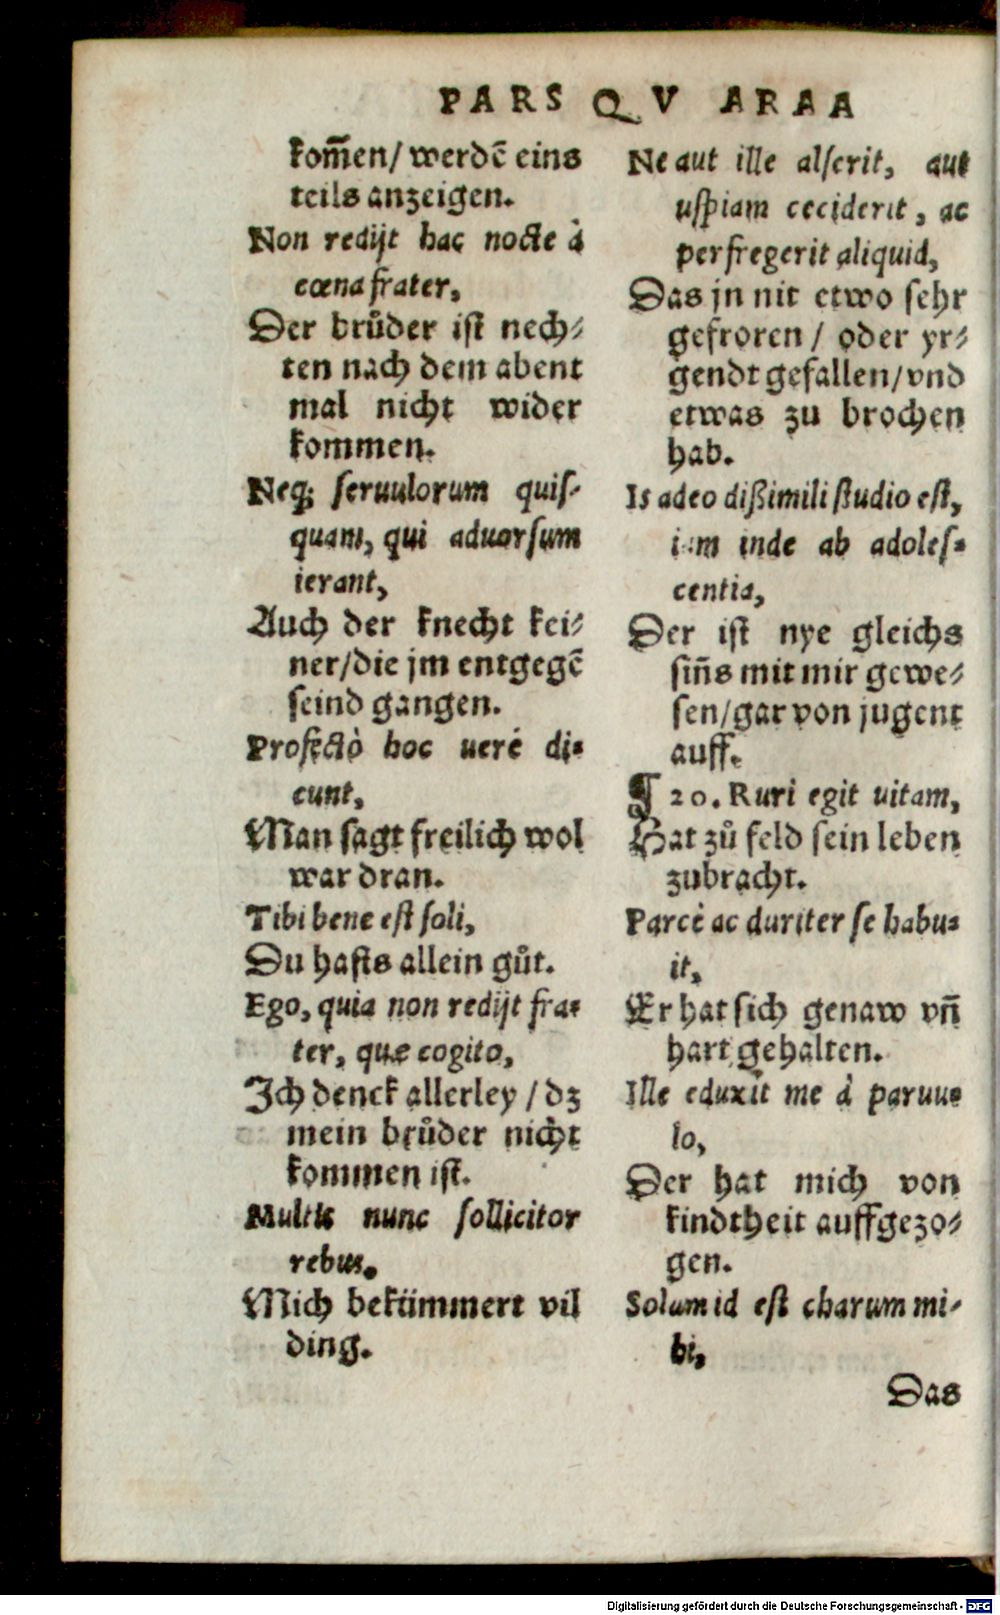 PARS QV ARAA
kom̄en/ werdē eins
teils anzeigen.
Non redijt hac nocte à
cœna frater,
Der brůder ist nech⸗
ten nach dem abent
mal nicht wider
kommen.
Neq; seruulorum quis-
quam, qui aduorsum
ierant,
Auch der knecht kei⸗
ner/die jm entgegē
seind gangen.
Profectò hoc uerè di-
cunt,
Man sagt freilich wol
war dran.
Tibi bene est soli,
Du hasts allein gůt.
Ego, quia non redijt fra-
ter, quæ cogito,
Ich denck allerley / dz
mein brůder nicht
kommen ist.
Multis nunc sollicitor
rebus.
Mich bekümmert vil
ding.
Ne aut ille alserit, aut
uspiam ceciderit, ac
perfregerit aliquid,
Das jn nit etwo sehr
gefroren / oder yr⸗
gendt gefallen/vnd
etwas zu brochen
hab.
Is adeo dißimili studio est,
iam inde ab adoles-
centia,
Der ist nye gleichs
siñs mit mir gewe⸗
sen/gar von jugent
auff.
¶ 20. Ruri egit uitam,
Hat zů feld sein leben
zubracht.
Parcè ac duriter se habu-
it,
Er hat sich genaw vñ
hart gehalten.
Ille eduxit me à paruu-
lo,
Der hat mich von
kindtheit auffgezo⸗
gen.
Solum id est charum mi-
hi,
Das
Digitalisierung gefördert durch die Deutsche Forschungsgemeinschaft - DFG